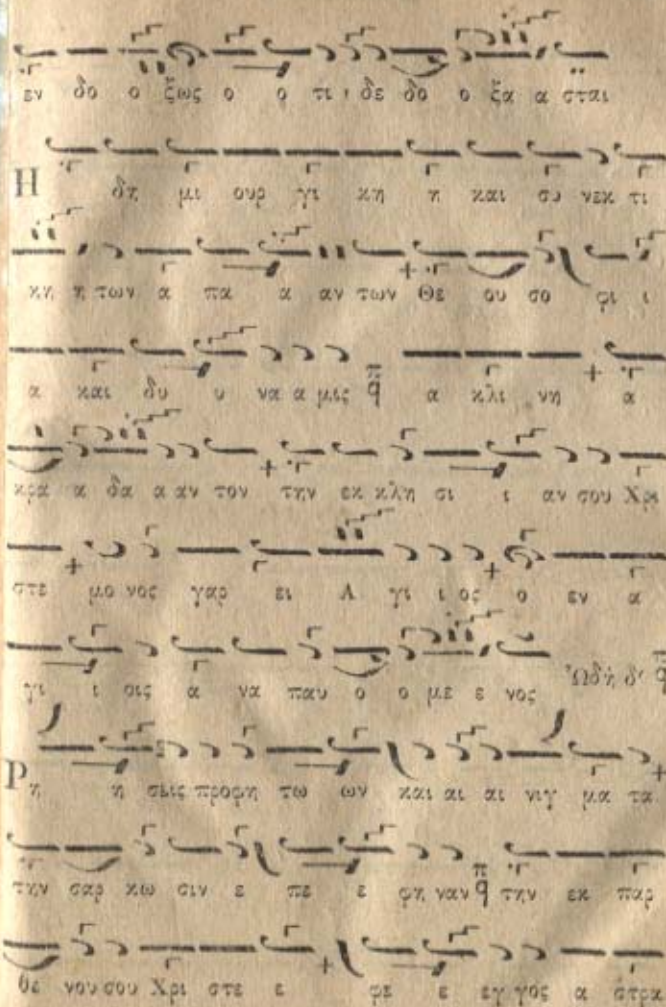 εν δο ο ξως ο ο τι δε δο ο ξα α σται
Η δη μι ουρ γι κη η και συ νεκ τι
κη η των α πα α αν των Θε ου σο φι ι
α και δυ υ να α μις α κλι νη α
κρα α δα α αν τον την εκ κλη σι ι αν σου Χρι
στε μο νος γαρ ει Α γι ι ος ο εν α
γι ι οις α να παυ ο ο με ε νος Ὠδὴ δ'
Ρη η σεις προφη τω ων και αι αι νιγ μα τα
την σαρ κω σιν ε πε ε φη ναν την εκ παρ
θε νου σου Χρι στε ε φε ε εγ γος α στρα